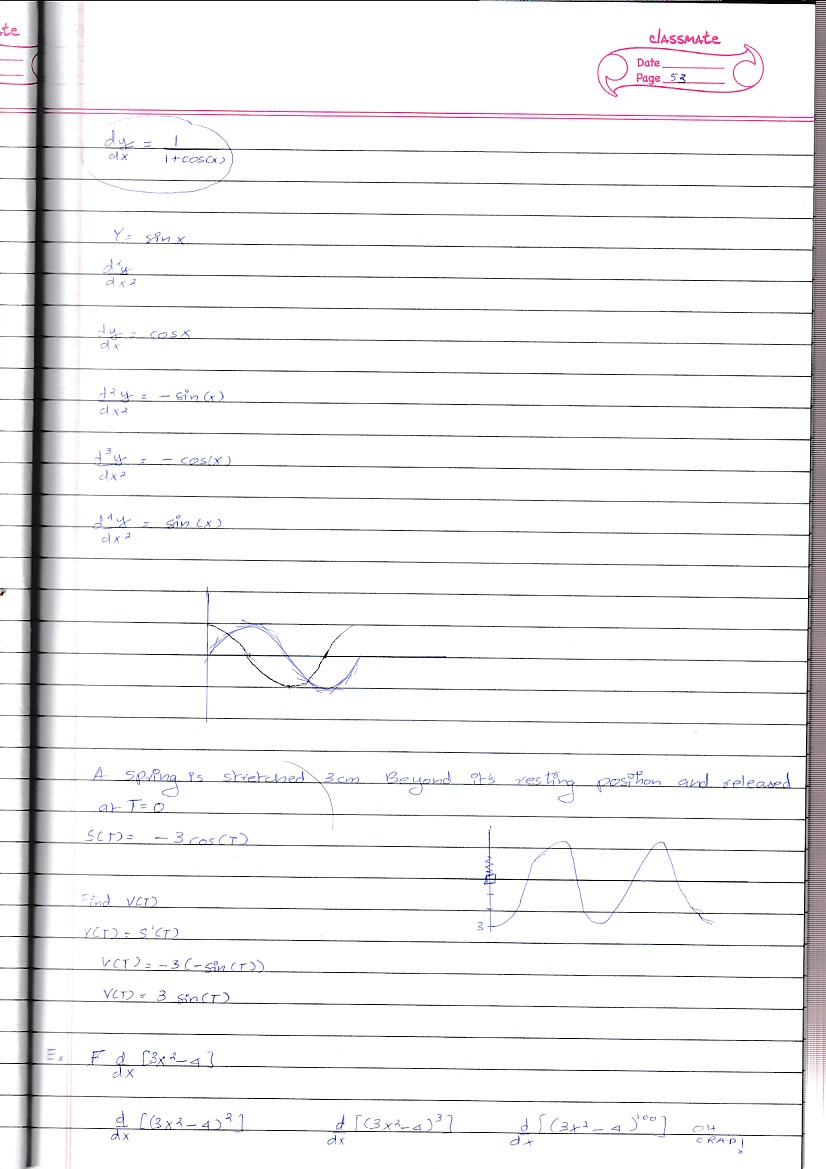 te
classmate
Date
Page 53
dy/dx = 1/(1+cos(x))
Y = sin x
d²y/dx²
dy/dx = cosx
d²y/dx² = -sin(x)
d³y/dx² = -cos(x)
d⁴y/dx² = sin(x)
A spring is stretched 3cm Beyond it's resting position and released
at T=0
S(T) = -3 cos(T)
3
Find V(T)
V(T) = S'(T)
V(T) = -3(-sin(T))
V(T) = 3 sin(T)
E. F d/dx [3x²-4]
d/dx [(3x²-4)²] d/dx [(3x²-4)³] d/dx [(3x²-4)¹⁰⁰] OH CRAP!